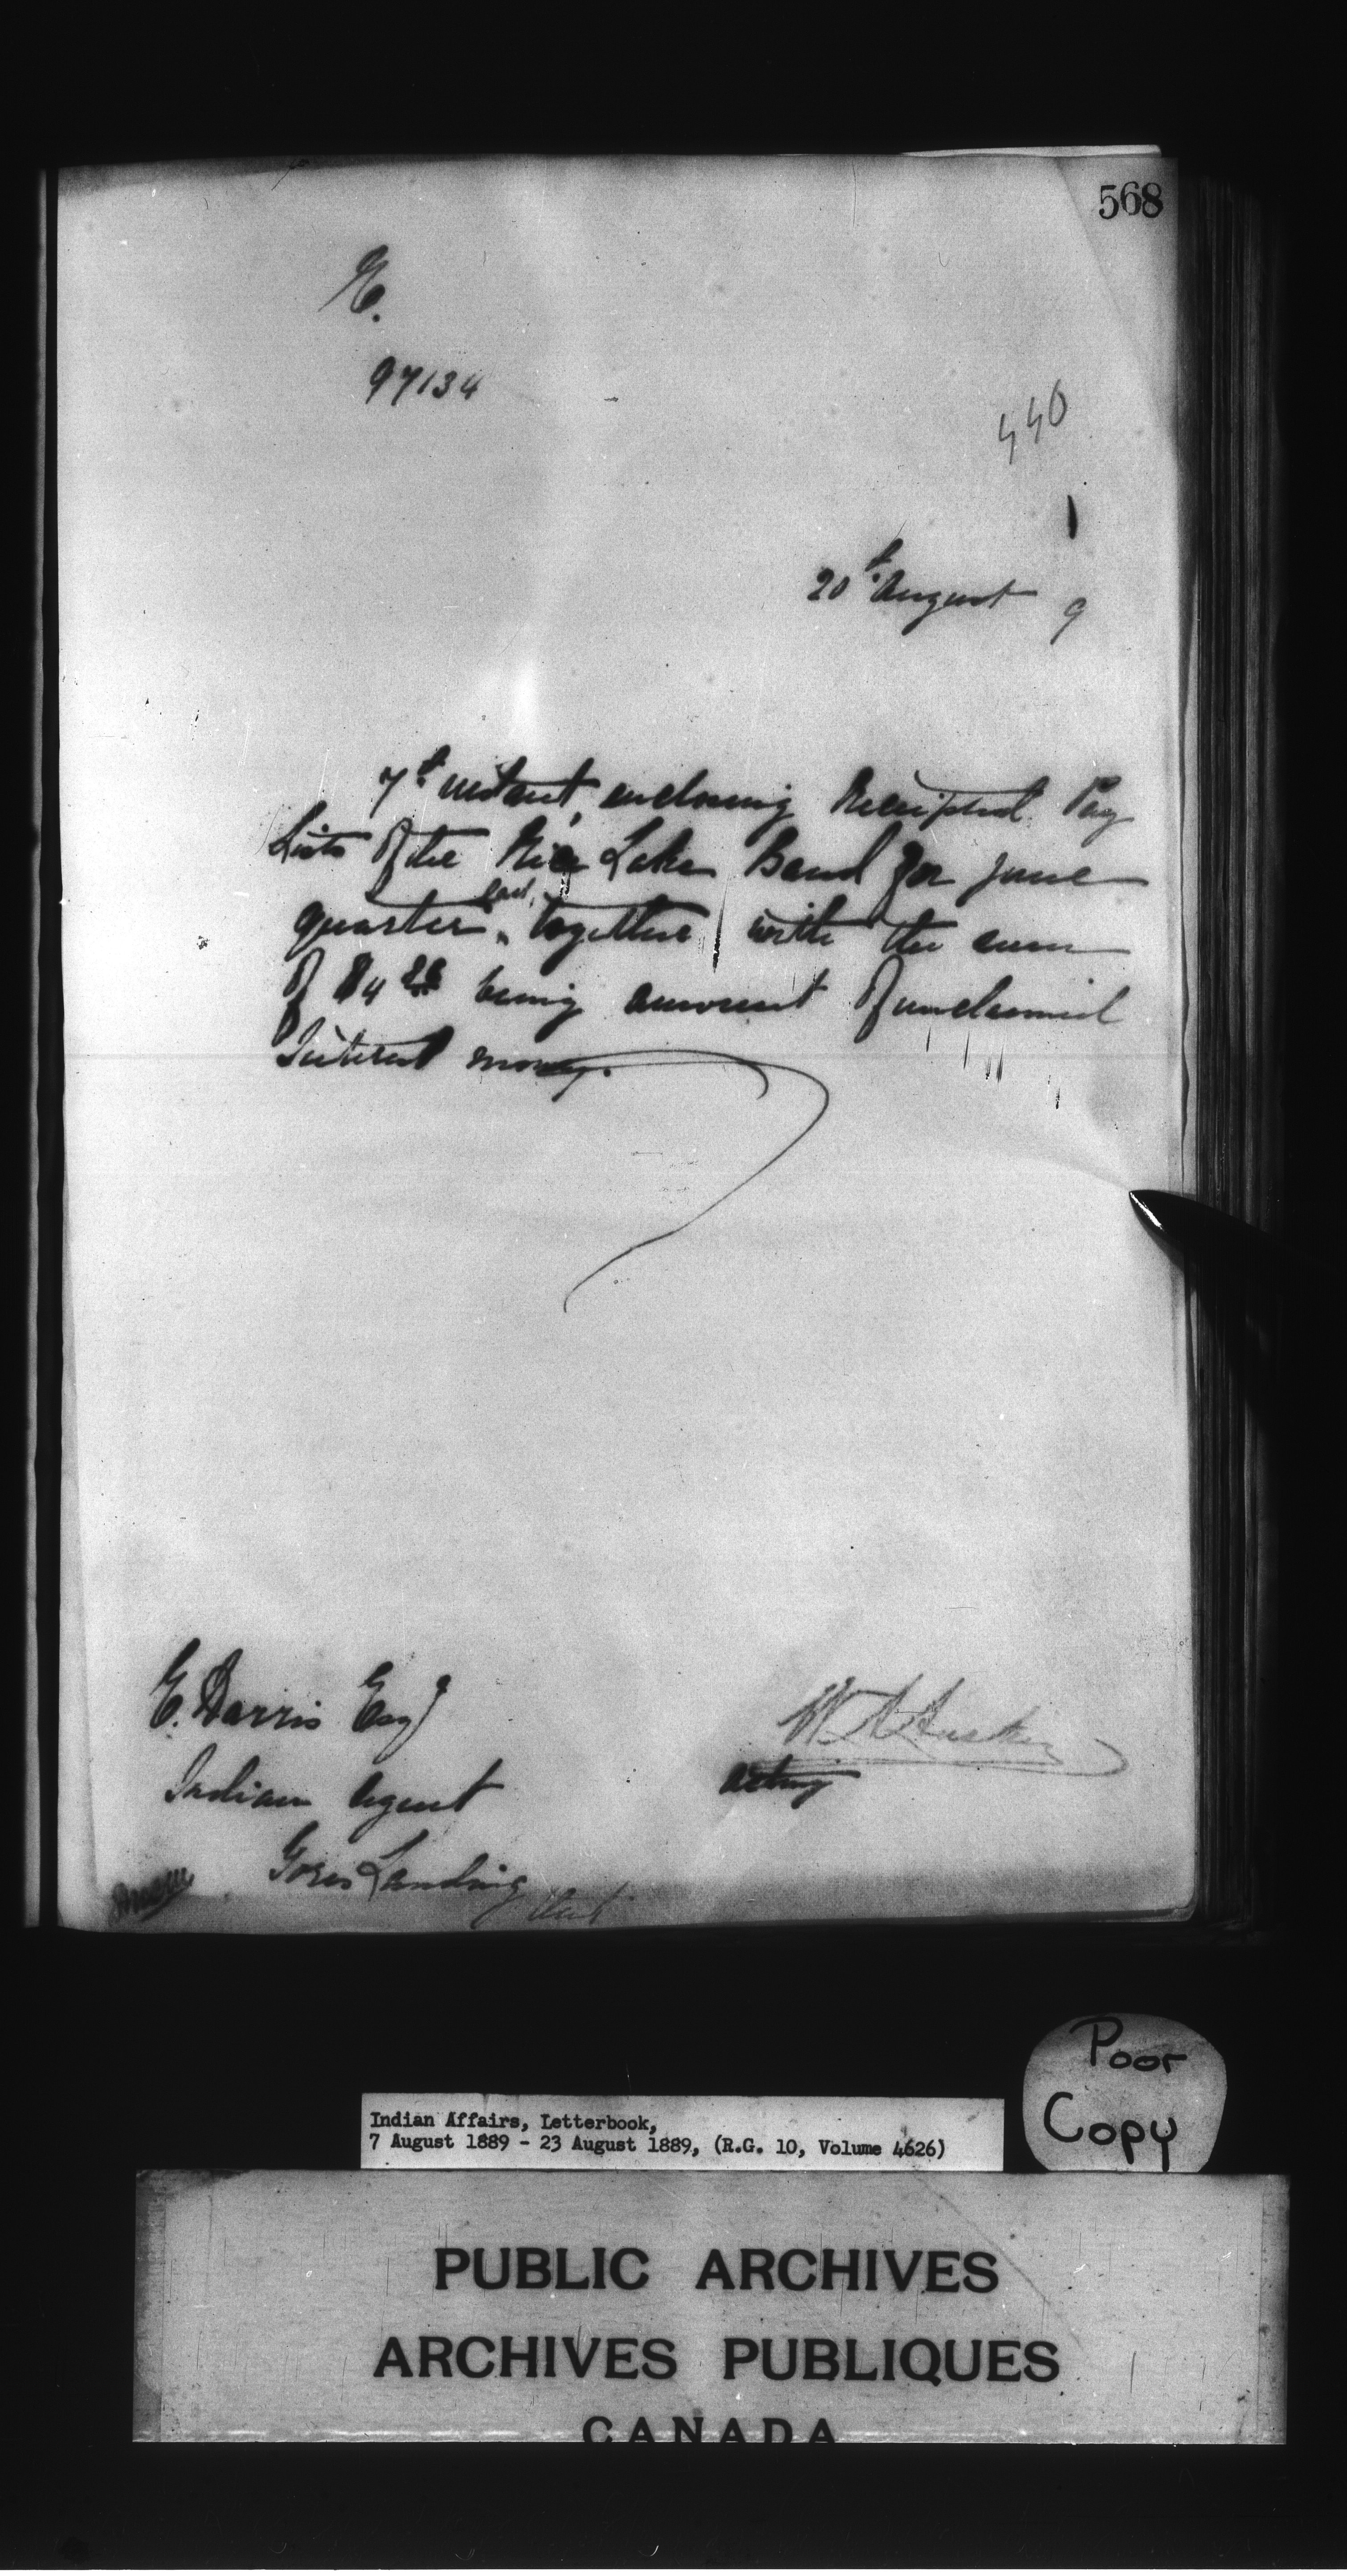 568
E.
97134
440
20th August 9
7th instant, enclosing Receipted Pay
Lists of the Rice Lake Band for June
quarter last, together with the sum
of $4 being amount of unclaimed
Interest money.
E. Harris Esqr
W. A. Austin
Indian Agent
Acting
Gores Landing
Ont
Indian Affairs, Letterbook,
7 August 1889 - 23 August 1889, (R.G. 10, Volume 4626)
Poor
Copy
PUBLIC ARCHIVES
ARCHIVES PUBLIQUES
CANADA